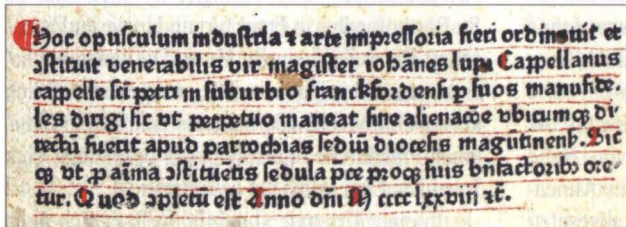 Hoc opusculum industria ⁊ arte impressoria fieri ordinauit et
ↄstituit venerabilis vir magister iohānes lupi Cappellanus
cappelle scī petri in suburbio franckfordensi p̲ suos manufide.
les dirigi sic vt perpetuo maneat sine alienacōe vbicumqꝫ di
rectū fuerit apud parrochias sediū diocesis magūtinensꝭ. Dic
qꝫ vt ꝓ aīma ↄstituētis sedula p̄ce proqꝫ suis bn̄factoribꝰ ore-
tur. Quod ↄpletū est Anno dn̄i M cccc lxxviij ⁊c̄.